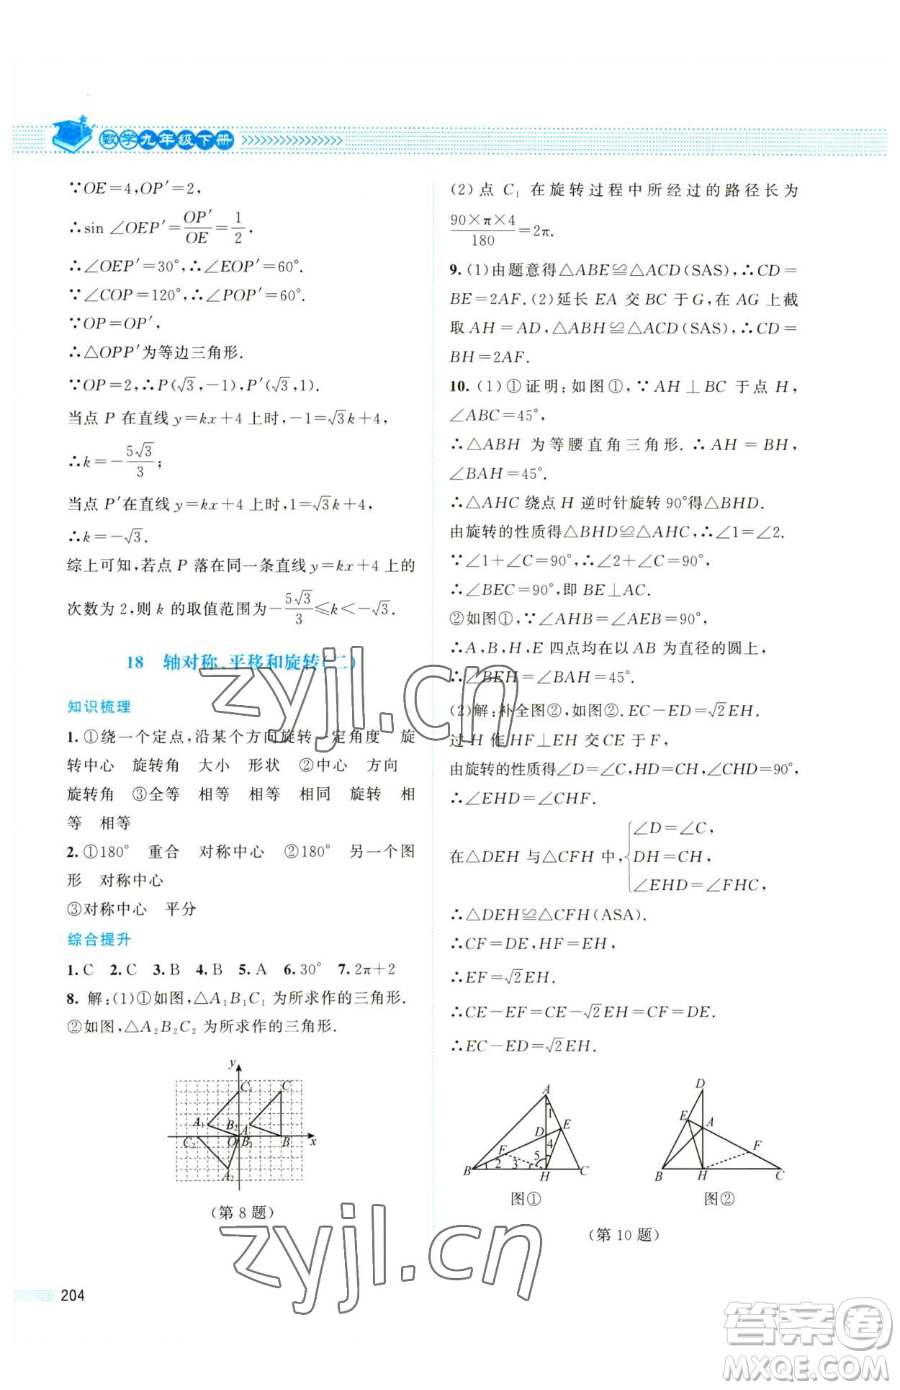 数学九年级下册
∵OE=4,OP′=2,
∴sin ∠OEP′=OP′/OE=1/2,
∴∠OEP′=30°,∴∠EOP′=60°.
∵∠COP=120°,∴∠POP′=60°.
∵OP=OP′,
∴△OPP′为等边三角形.
∵OP=2,∴P(√3,-1),P′(√3,1).
当点 P 在直线 y=kx+4 上时,-1=√3k+4,
∴k=-5√3/3;
当点 P′在直线 y=kx+4 上时,1=√3k+4,
∴k=-√3.
综上可知,若点 P 落在同一条直线 y=kx+4 上的
次数为 2,则 k 的取值范围为-5√3/3≤k<-√3.
18 轴对称、平移和旋转(二)
知识梳理
1.①绕一个定点,沿某个方向旋转一定角度 旋
转中心 旋转角 大小 形状 ②中心 方向
旋转角 ③全等 相等 相等 相同 旋转 相
等 相等
2.①180° 重合 对称中心 ②180° 另一个图
形 对称中心
③对称中心 平分
综合提升
1.C 2.C 3.B 4.B 5.A 6.30° 7.2π+2
8.解:(1)①如图,△A₁B₁C₁ 为所求作的三角形.
②如图,△A₂B₂C₂ 为所求作的三角形.
y
C₁ C
A₁ B₁ A
C₂ O B₂ B x
A₂
(第 8 题)
204
(2)点 C₁ 在旋转过程中所经过的路径长为
90×π×4/180=2π.
9.(1)由题意得△ABE≌△ACD(SAS),∴CD=
BE=2AF.(2)延长 EA 交 BC 于 G,在 AG 上截
取 AH=AD,△ABH≌△ACD(SAS),∴CD=
BH=2AF.
10.(1)①证明:如图①,∵AH⊥BC 于点 H,
∠ABC=45°,
∴△ABH 为等腰直角三角形.∴AH=BH,
∠BAH=45°.
∴△AHC 绕点 H 逆时针旋转 90°得△BHD.
由旋转的性质得△BHD≌△AHC,∴∠1=∠2.
∵∠1+∠C=90°,∴∠2+∠C=90°.
∴∠BEC=90°,即 BE⊥AC.
②如图①,∵∠AHB=∠AEB=90°,
∴A,B,H,E 四点均在以 AB 为直径的圆上,
∴∠BEH=∠BAH=45°.
(2)解:补全图②,如图②.EC-ED=√2EH.
过 H 作 HF⊥EH 交 CE 于 F,
由旋转的性质得∠D=∠C,DH=CH,∠CHD=90°,
∴∠EHD=∠CHF.
∠D=∠C,
在△DEH 与△CFH 中,{DH=CH,
∠EHD=∠FHC,
∴△DEH≌△CFH(ASA).
∴CF=DE,HF=EH,
∴EF=√2EH.
∴CE-EF=CE-√2EH=CF=DE.
∴EC-ED=√2EH.
A 1 D E F 4 5 B 2 3 H C
图①
D E A F B H C
图②
(第 10 题)
zyjl.cn
zyjl.cn
答案圈
MXQE.COM